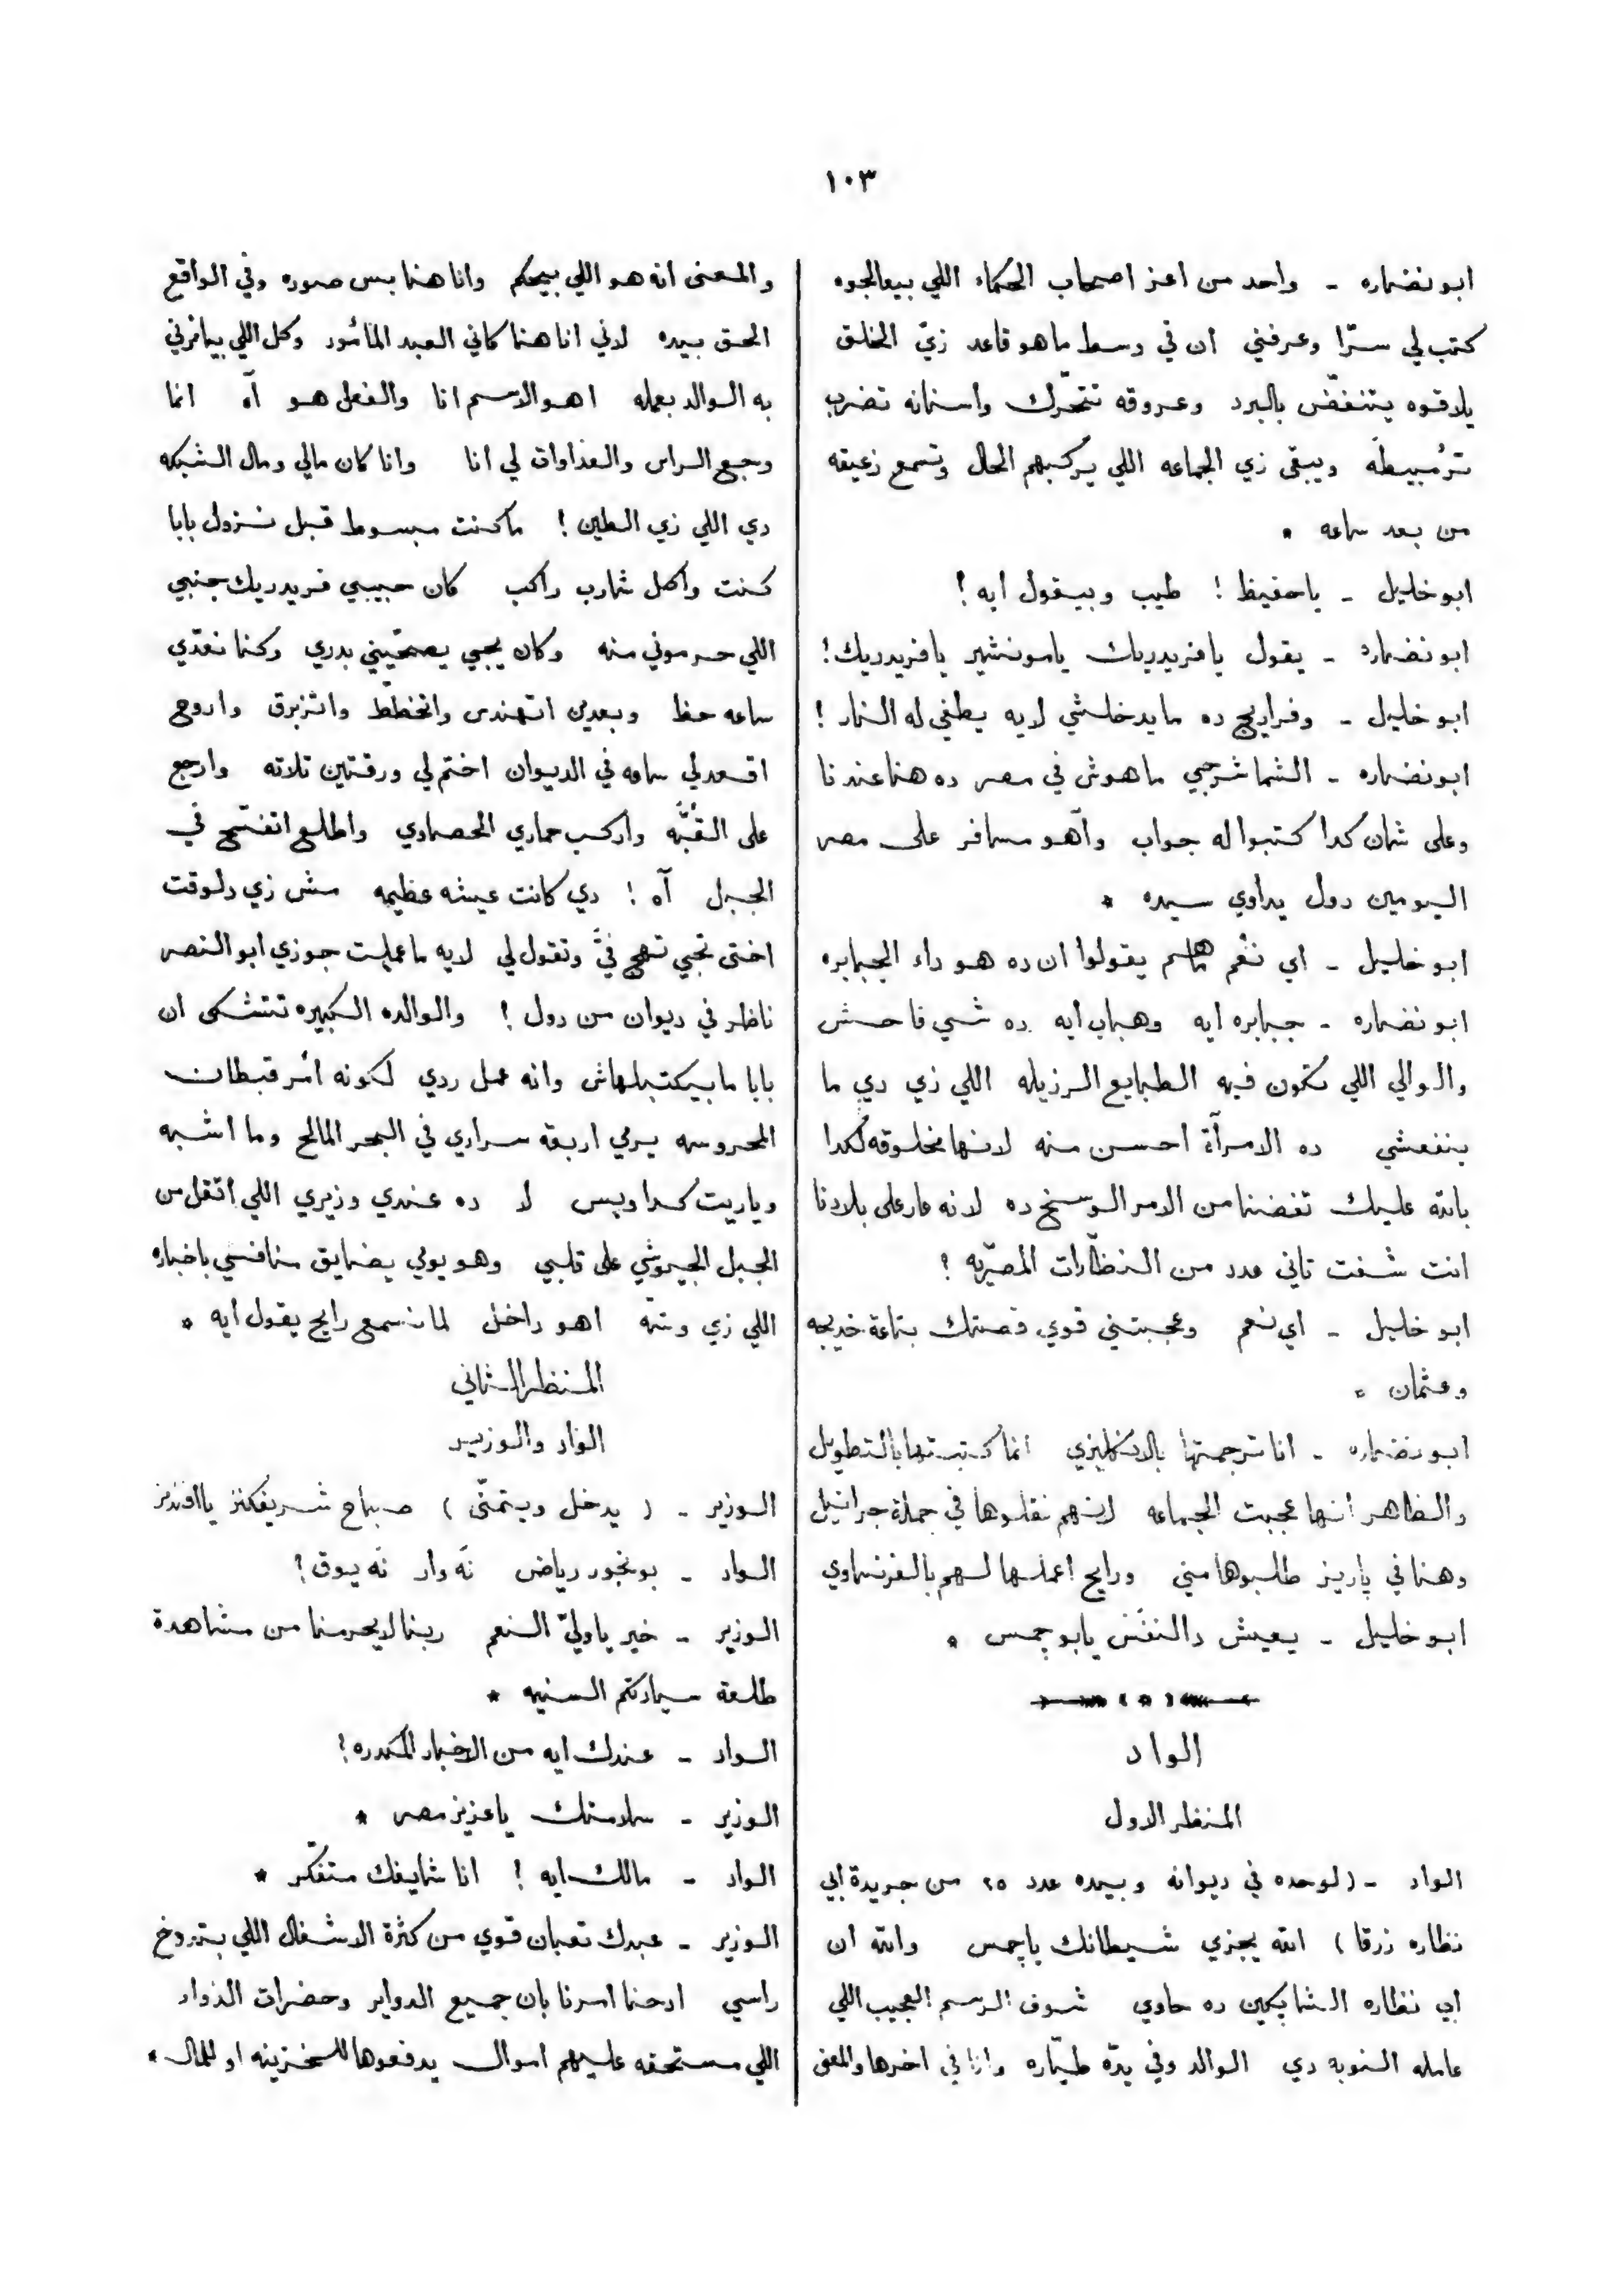 ١٠٣
ابو نضاره - واحد من اعز اصحاب الحكماء اللي بيعالجوه
كتب لي سرّا وعرفني ان في وسط ما هو قاعد زيّ الخلق
يلاقوه يتنفّض بالبرد وعروقه تتحرّك واسنانه تضرب
ترمبيطه ويبقى زي الجماعه اللي يركبهم الحال وتسمع زعيقه
من بعد ساعه *
ابو خليل - ياحفيظ ! طيب وبيقول ايه !
ابو نضاره - يقول يا فريدريك يا مونشير يا فريدريك !
ابو خليل - وفرايج ده ما يدخلشي لايه يطفي له النار !
ابو نضاره - الشماشرجي ماهوش في مصر ده هنا عندنا
وعلى شان كدا كتبوا له جواب وآهو مسافر على مصر
اليومين دول يداوي سيده *
ابو خليل - اي نعم يقولوا ان ده هو داء الجبابره
ابو نضاره - جبابره ايه وهباب ايه ده شي فاحش
والوالي اللي تكون فيه الطبايع الرزيله اللي زي دي ما
ينفعشي ده الامرأة احسن منه لانها مخلوقه لكدا
بالله عليك تفضنا من الامر الوسخ ده لانه عار على بلادنا
انت شفت تاني عدد من النظّارات المصريّه ؟
ابو خليل - اي نعم وعجبتني قوي قصتك بتاعة خديجه
وعثمان *
ابو نضاره - انا ترجمتها بالانكليزي انما كتبتها بالتطويل
والظاهر انها عجبت الجماعه لانهم نقلوها في جملة جرانيل
وهنا في پاريز طلبوها مني ورايح اعملها لهم بالفرنساوي
ابو خليل - يعيش دالنفَس يابو جمس *
الواد
المنظر الاول
الواد - (لوحده في ديوانه وبيده عدد ٢٥ من جريدة ابي
نظاره زرقا) الله يجزي شيطانك ياجمس والله ان
ابي نظاره الشايكين ده حاوي شوف الرسم العجيب اللي
عامله النوبه دي الوالد وفي يدّه طيّاره وانا في اخرها والمعنى
والمعنى انه هو اللي بيحكم وانا هنا بس صوره وفي الواقع
الحق بيده لاني انا هنا كاني العبد المأمور وكل اللي بيامرني
به الوالد بعمله اهو الاسم انا والفعل هو آه انما
وجع الراس والعذاوات لي انا وانا كان مالي ومال الشبكه
دي اللي زي الطين ! ما كنت مبسوط قبل نزول بابا
كنت واكل شارب راكب كان حبيبي فريدريك جنبي
اللي حرموني منه وكان يجي يصحّيني بدري وكنا نعدّي
ساعه حظ وبعدين اتهندس واتخطّط واتزبرق واروح
اقعد لي ساعه في الديوان اختم لي ورقتين تلاته وارجع
على القبّه واركب حماري الحصاوي واطلع اتفسّح في
الجبل آه ! دي كانت عيشه عظيمه مش زي دلوقت
اختى تجي تهج فيّ وتقول لي لايه ما عملت جوزي ابو النصر
ناظر في ديوان من دول ! والوالده الكبيره تتشكى ان
بابا ما بيكتبلهاش وانه عمل ردي لكونه أمر قبطان
المحروسه يرمي اربعة سراري في البحر المالح وما اشبه
وياريت كدا وبس لا ده عندي وزيري اللي اتقل من
الجبل الجيوشي على قلبي وهو يوتي يضايق منافسي باخباره
اللي زي وشّه اهو داخل لما نسمع رايح يقول ايه *
المنظر الثاني
الواد والوزير
الوزير - ( يدخل ويتمنّى ) صباح شريفكنز يا افندمز
الواد - بونجور رياض نَه وار نَه يوق !
الوزير - خير ياوليّ النعم ربنا لايحرمنا من مشاهدة
طلعة سيادتكم السنيه *
الواد - عندك ايه من الاخبار المكدره !
الوزير - سلامتك ياعزيز مصر *
الواد - مالك ايه ! انا شايفك متفكّر *
الوزير - عبدك تعبان قوي من كثرة الاشغال اللي بتدوخ
راسي احنا امرنا بان جميع الدواير وحضرات الذوات
اللي مستحقه عليهم اموال يدفعوها للخزينه او للمال *